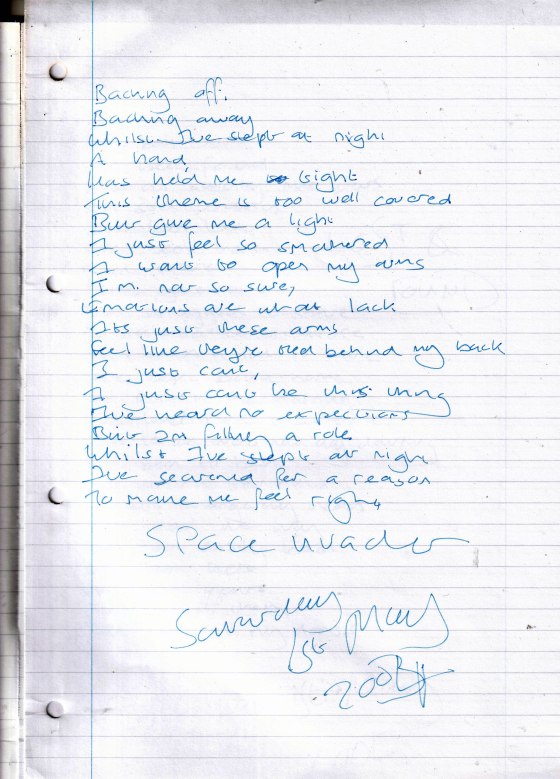 Backing off.
Backing away
Whilst I've slept at night
A hand,
Has held me tight
This theme is too well covered
But give me a light
I just feel so smothered
I want to open my arms
I'm not so sure,
Emotions are what lack
Its just these arms
Feel like they're tied behind my back
I just can't,
I just can't be this thing
I've heard no expections
But Im filling a role
Whilst I've slept at night
I've searched for a reason
To make me feel right,
Space invader
Saturday
1st May